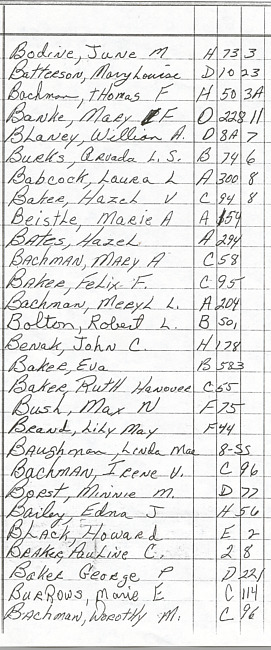 Bodine, June M H 73 3
Batteeson, Mary Louise D 10 23
Bachman, Thomas F H 50 3A
Banke, Mary F D 228 11
Blaney, William A. D 8A 7
Burks, Arvada L.S. B 74 6
Babcock, Laura L A 300 8
Baker, Hazel V C 94 8
Beistle, Marie A A 154
Bates, Hazel A 294
Bachman, Mary A C 58
Baker, Felix F. C 95
Bachman, Meryl L. A 204
Bolton, Robert L. B 501
Benak, John C. H 178
Baker, Eva B 583
Baker, Ruth Hanover C 55
Bush, Max N F 75
Brand, Lily May F 44
Baughman, Linda Mae 8-SS
Bachman, Irene V. C 96
Borst, Minnie M. D 77
Bailey, Edna J H 56
Black, Howard E 2
Braker, Pauline C. 2 8
Baker George P D 221
Burrows, Marie E C 114
Bachman, Dorothy M. C 96